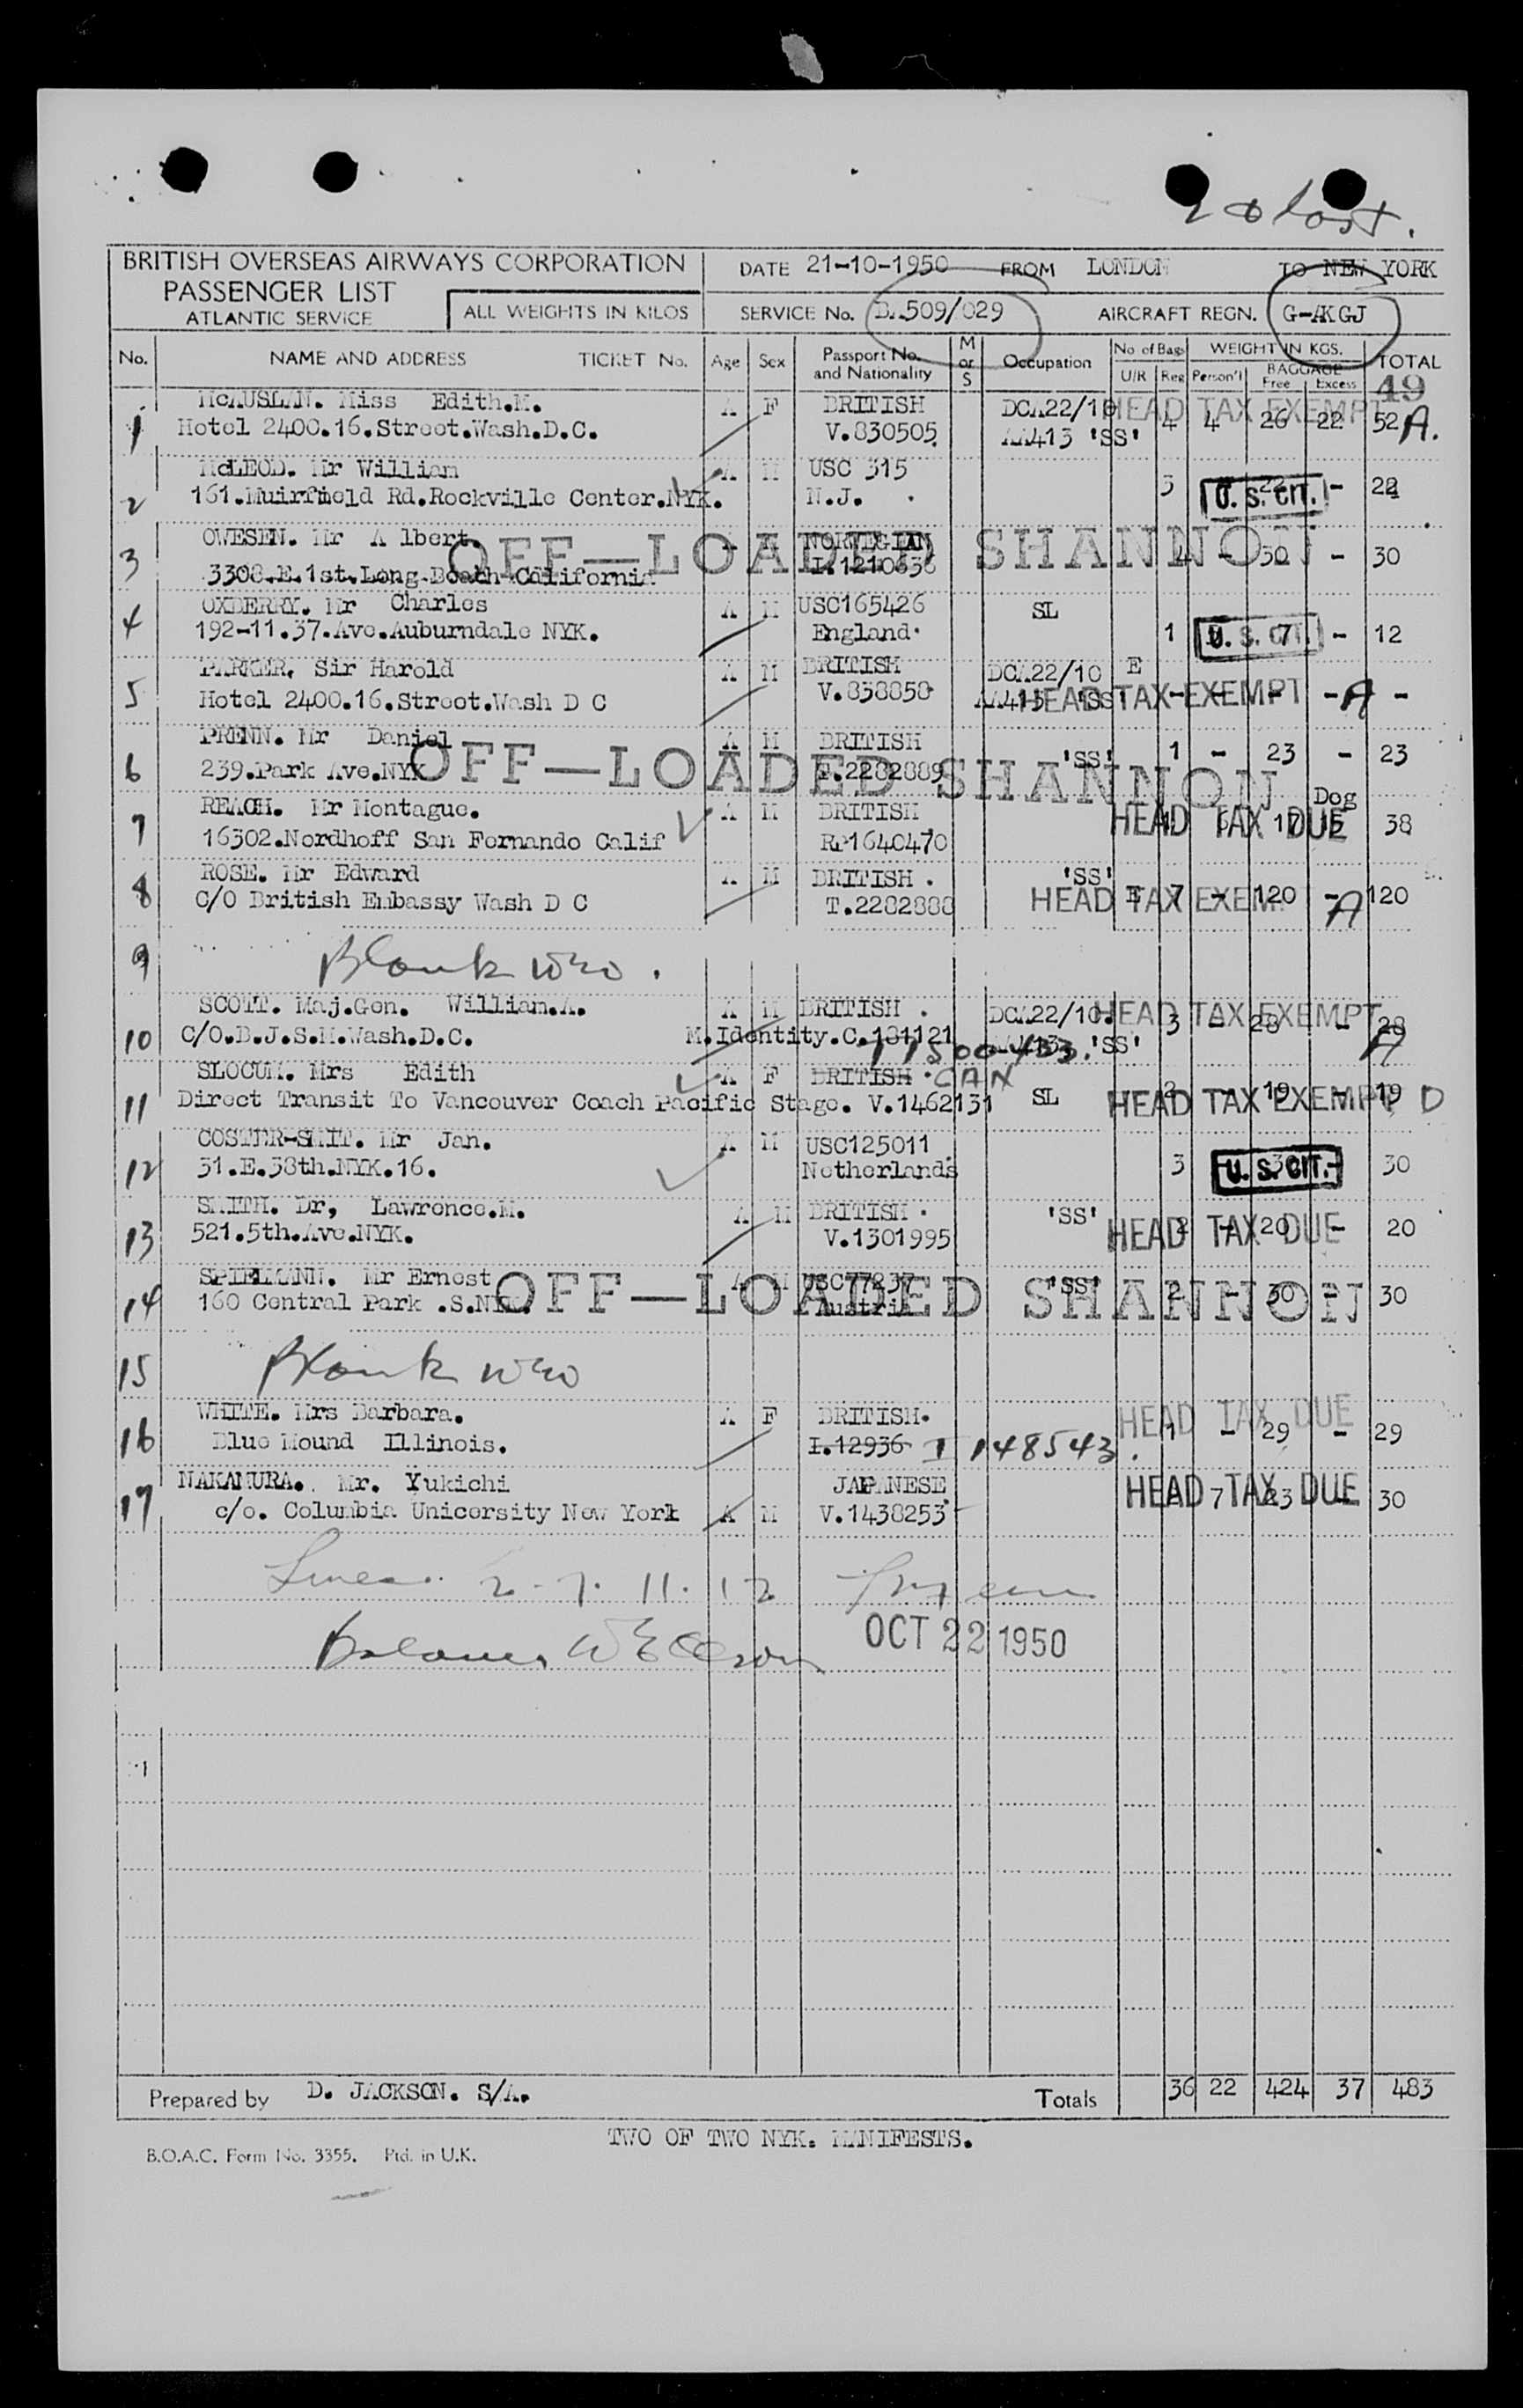 BRITISH OVERSEAS AIRWAYS CORPORATION
PASSENGER LIST
ATLANTIC SERVICE
ALL WEIGHTS IN KILOS
DATE 21-10-1950 FROM LONDON TO NEW YORK
SERVICE No. BA509/029 AIRCRAFT REGN. G-AKGJ
No. NAME AND ADDRESS TICKET No. Age Sex Passport No. and Nationality M or S Occupation No of Bags U/R Reg WEIGHT IN KGS. Person'l BAGGAGE Free Excess TOTAL
49
1 McAUSLAN. Miss Edith.M. A F BRITISH DCA22/10 HEAD TAX EXEMPT
Hotel 2400.16.Street.Wash.D.C. V.830505. AA413 'SS' 4 4 26 22 52 A.
2 McLEOD. Mr William A M USC 315
161.Muirfield Rd.Rockville Center.NYK. N.J. 3 U.S. CIT. - 22
3 OWESEN. Mr A lbert. NORWEGIAN
OFF—LOADED SHANNON
3308.E.1st.Long Beach California - 30 - 30
4 OXBERRY. Mr Charles A M USC165426 SL
192-11.37.Ave.Auburndale NYK. England. 1 U.S. CIT. 7 - 12
5 PARKER. Sir Harold A M BRITISH DCA22/10 E
Hotel 2400.16.Street.Wash D C V.838858 AA413 'SS' HEAD TAX EXEMPT - A -
6 PRENN. Mr Daniel A M BRITISH 'SS' 1 - 23 - 23
239.Park Ave.NYK T.2282889
OFF—LOADED SHANNON
7 REACH. Mr Montague. A M BRITISH Dog
16302.Nordhoff San Fernando Calif RP1640470 HEAD TAX DUE 17 15 38
8 ROSE. Mr Edward A M BRITISH . 'SS'
C/O British Embassy Wash D C T.2282888 HEAD TAX EXEM 7 - 120 - A 120
9 Blank
10 SCOTT. Maj.Gen. William.A. A M BRITISH . DCA22/10. HEAD TAX EXEMPT
C/O.B.J.S.M.Wash.D.C. M.Identity.C.131121 'SS' 3 - 28 - 28 A
11 SLOCUM. Mrs Edith A F BRITISH . CAN
Direct Transit To Vancouver Coach Pacific Stage. V.1462131 SL HEAD TAX EXEMPT 2 - 19 - 19 D
12 COSTER-SMIT. Mr Jan. A M USC125011
31.E.38th.NYK.16. Netherlands 3 U.S. CIT. 30
13 SMITH. Dr, Lawrence.M. A M BRITISH . 'SS'
521.5th.Ave.NYK. V.1301995 HEAD TAX DUE 2 - 20 - 20
14 SPIELMANN. Mr Ernest A M USC77237 'SS'
160 Central Park .S.NYK. Austria 2 - 30 - 30
OFF—LOADED SHANNON
15 Blank
16 WHITE. Mrs Barbara. A F BRITISH. HEAD TAX DUE
Blue Mound Illinois. I.12936 I 148543. 1 - 29 - 29
17 NAKAMURA. Mr. Yukichi JAPANESE HEAD TAX DUE
c/o. Columbia Unicersity New York A M V.1438253 7 23 30
Lines. 2. 7. 11. 12
OCT 22 1950
Prepared by D. JACKSON. S/A. Totals 36 22 424 37 483
TWO OF TWO NYK. MANIFESTS.
B.O.A.C. Form No. 3355. Ptd. in U.K.